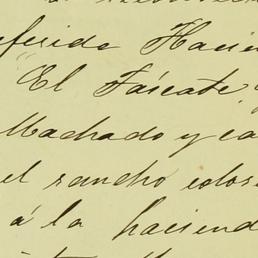 eferida Hacien
"El Táscate"
Machado y ca
el rancho colos
á la haciend